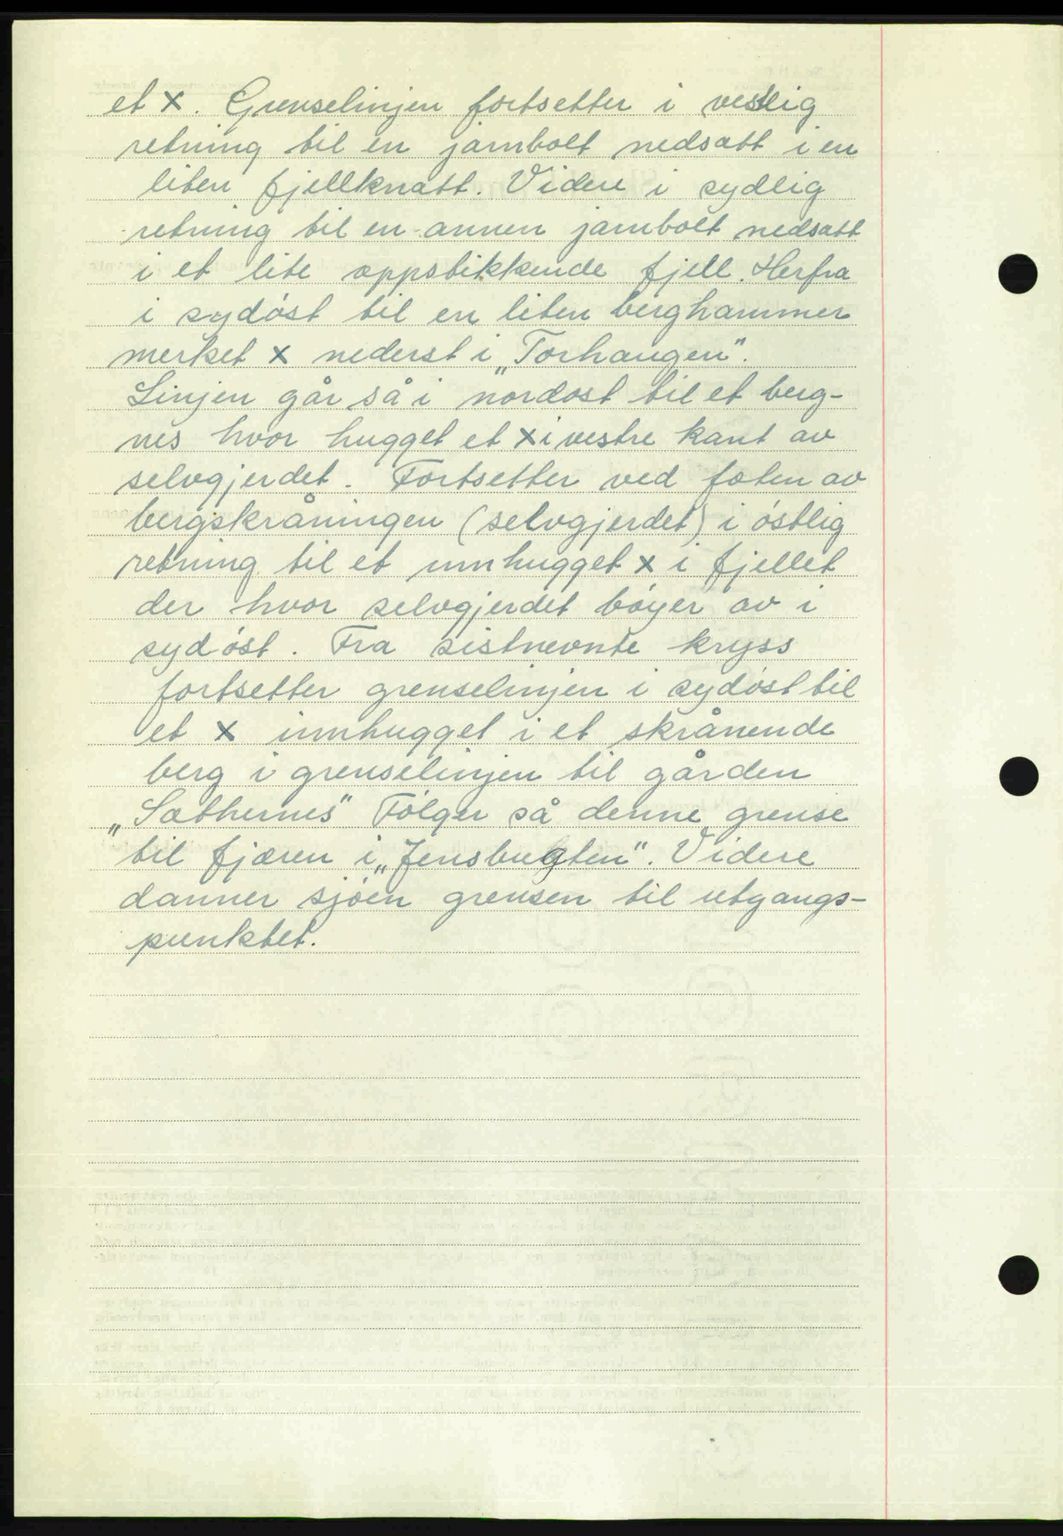 et X. Grenselinjen fortsetter i vestlig
retning til en jarnbolt nedsatt i en
liten fjellknatt. Videre i sydlig
retning til en annen jarnbolt nedsatt
i et lite oppstikkende fjell. Herfra
i sydøst til en liten berghammer
merket X nederst i „Torhaugen".
Linjen går så i nordost til et berg-
nes hvor hugget et X i vestre kant av
selvgjerdet. Fortsetter ved foten av
bergskråningen (selvgjerdet) i østlig
retning til et innhugget X i fjellet
der hvor selvgjerdet bøyer av i
sydøst. Fra sistnevnte kryss
fortsetter grenselinjen i sydøst til
et X innhugget i et skrånende
berg i grenselinjen til gården
„Sæthernes" Følger så denne grense
til fjæren i „Jensbugten". Videre
danner sjøen grensen til utgangs-
punktet.